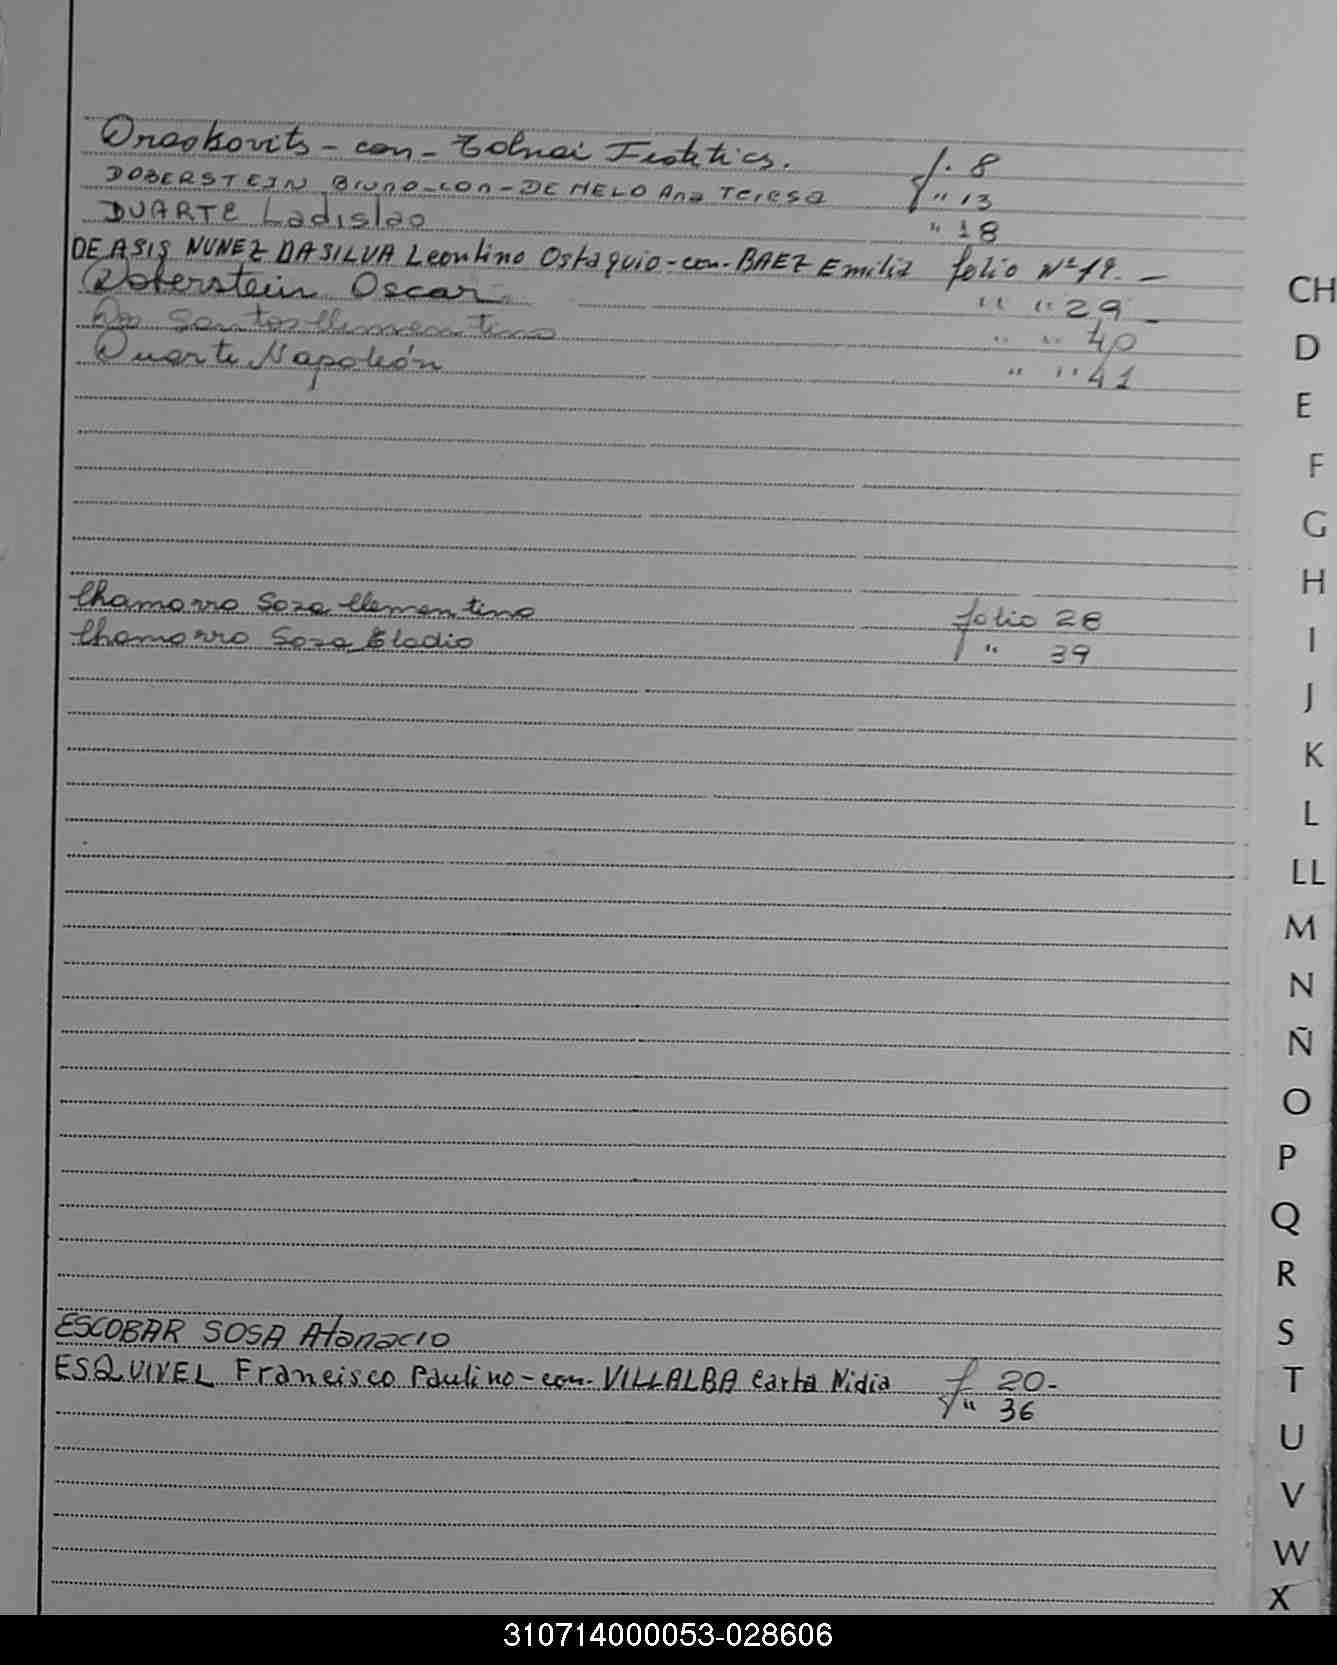 Draskovits - con - Tolnai f. 8
DOBERSTEIN Bruno - con - DE MELO Ana Teresa " 13
DUARTE Ladislao " 18
DE ASIS NUNEZ DA SILVA Leontino Ostaquio - con - BAEZ Emilia folio Nº 19. -
Doberstein Oscar " " 29 -
Dos Santos Clementino " " 40
Duarte Napoleón " " 41
Chamorro Soza Clementino folio 28
Chamorro Soza Eladio " 39
ESCOBAR SOSA Atanacio
ESQUIVEL Francisco Paulino - con - VILLALBA Carta Nidia f 20 -
" 36
CH
D
E
F
G
H
I
J
K
L
LL
M
N
Ñ
O
P
Q
R
S
T
U
V
W
X
310714000053-028606